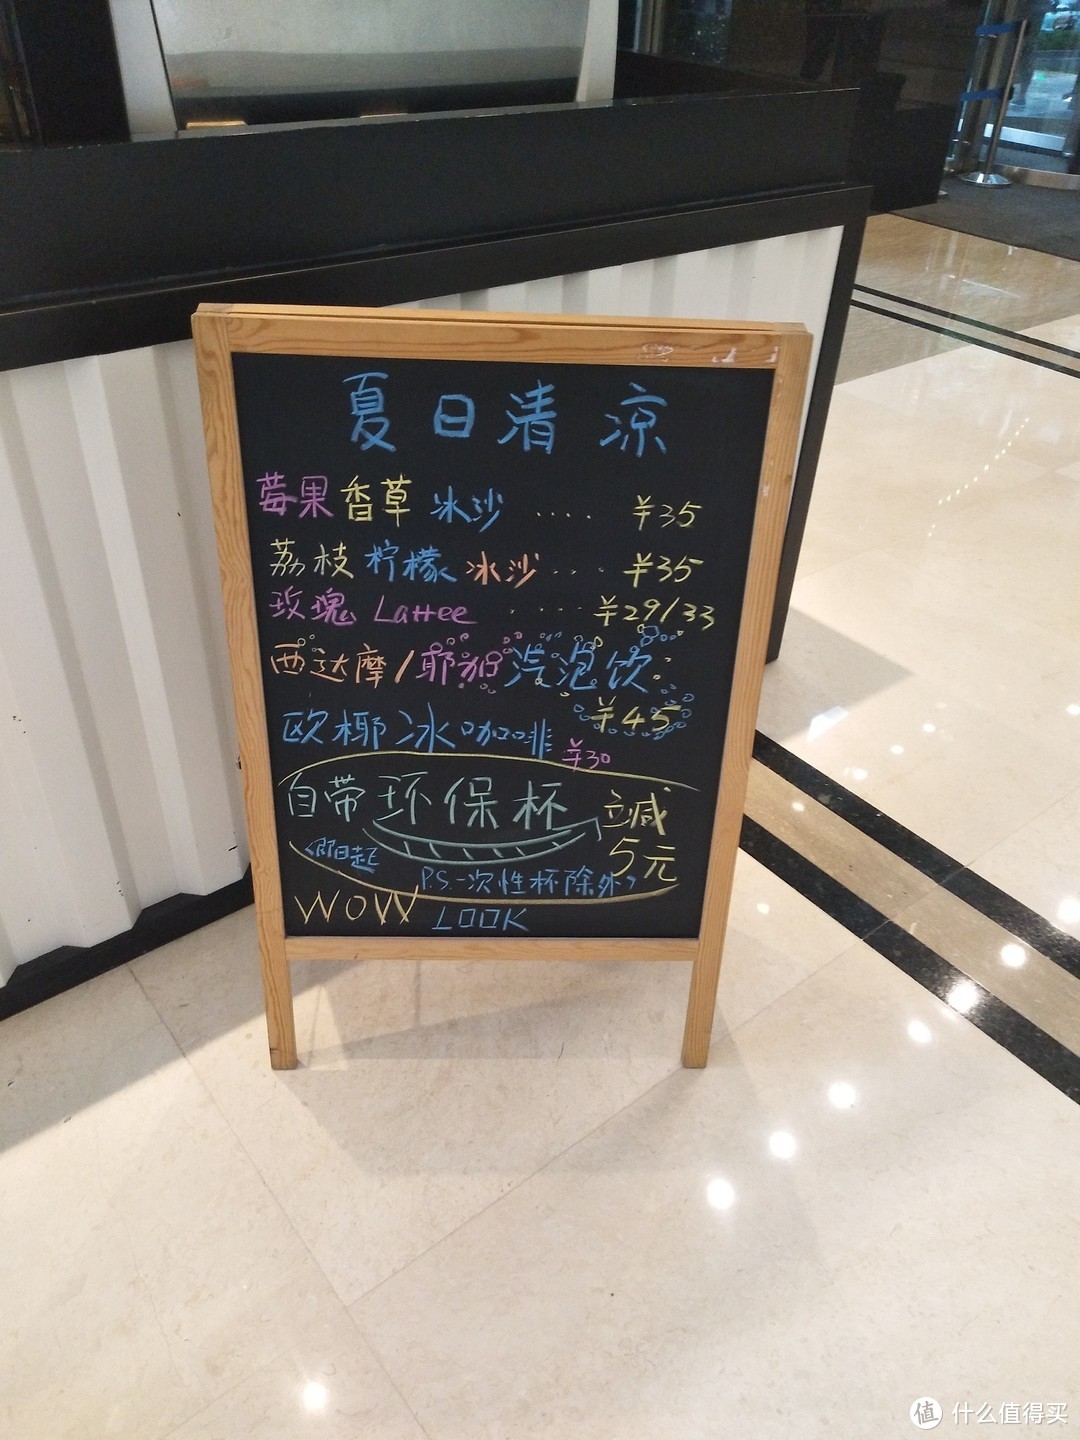 夏日清凉
莓果香草冰沙 .... ¥35
荔枝柠檬冰沙... ¥35
玫瑰 Lattee ..... ¥29/33
西达摩/耶加汽泡饮:
¥45
欧椰冰咖啡 ¥30
自带环保杯 立减
5元
<即日起 P.S.一次性杯除外>
WOW LOOK
值 什么值得买